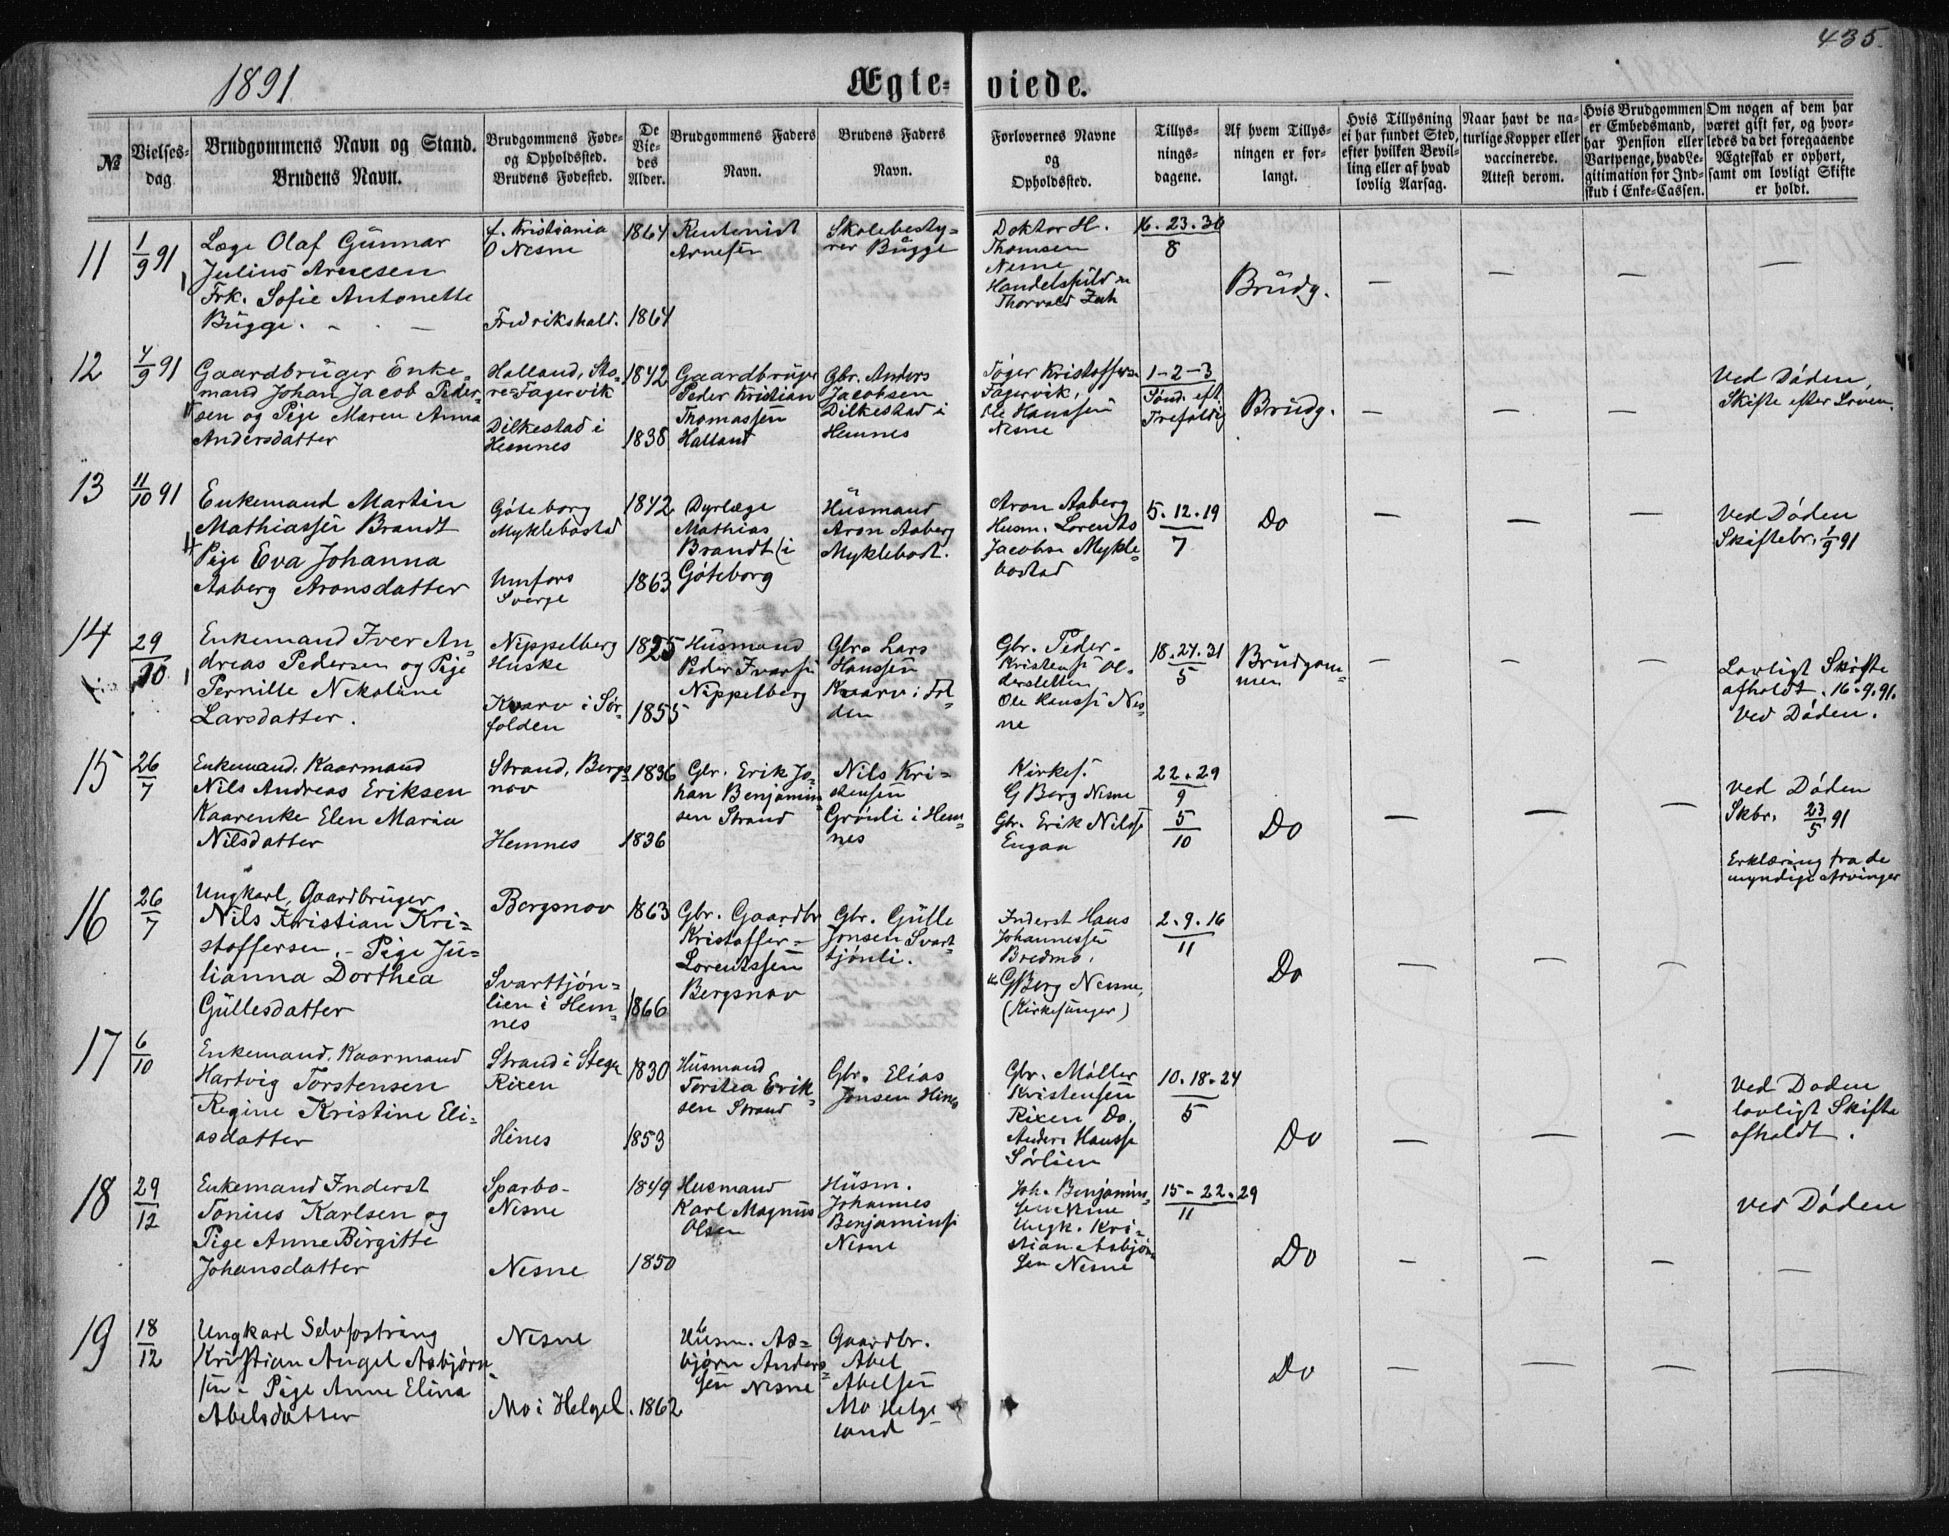 435.
1891
Ægteviede.
№
Vielsesdag
Brudgommens Navn og Stand.
Brudens Navn.
Brudgommens Føde-
og Opholdssted.
Brudens Fødested.
De
Vie-
des
Alder.
Brudgommens Faders
Navn.
Brudens Faders
Navn.
Forlovernes Navne
og
Opholdssted.
Tillys-
nings-
dagene.
Af hvem Tillys-
ningen er for-
langt.
Hvis Tillysning
ei har fundet Sted,
efter hvilken Bevil-
ling eller af hvad
lovlig Aarsag.
Naar havt de na-
turlige Kopper eller
vaccinerede.
Attest derom.
Hvis Brudgommen
er Embedsmand,
har Pension eller
Vartpenge, hvad Le-
gitimation for Ind-
skud i Enke-Cassen.
Om nogen af dem har
været gift før, og hvor-
ledes da det foregaaende
Ægteskab er ophørt,
samt om lovligt Skifte
er holdt.
11
1/9 91
Læge Olaf Gunnar
Julius Arnesen
Frk. Sofie Antonette
Bugge. - . -
f. Kristiania
O Nesne
Fredrikshald.
1864
1864
Arnesen
Skolebesty-
rer Bugge
Doktor H.
Thomsen
Nesne
Thorvald Zahl
16. 23. 30
8
Brudg.
— — — —
12
4/9 91
Gaardbruger Enke-
mand Johan Jacob Peder-
sen og Pige Maren Anna
Andersdatter
Halland, Sto-
re-Fagervik
Dilkestad i
Hemnes
1842
1838
Gaardbruger
Peder Kristian
Thomassen
Halland
Gbr. Anders
Jacobsen
Dilkestad i
Hemnes
Tøger Kristoffersen
Fagervik,
Ole Hanssen
Nesne
1-2-3
Sønd. eft.
Trefoldig
Brudg.
— — —
Ved Døden,
Skifte efter Loven.
13
11/10 91
Enkemand Martin
Mathiassen Brandt
Pige Eva Johanna
Aaberg Aronsdatter
Göteborg
Myklebostad
Umfors
Sverge
1842
1863
Dyrlæge
Mathias
Brandt (i
Göteborg
Husmand
Aron Aaberg
Myklebost.
Aron Aaberg
Husm. Lorents
Jacobsn Mykle-
bostad
5. 12. 19
7
Do
— — —
Ved Døden
Skiftebr. 1/9 91
14
29/10
Enkemand Iver An-
dreas Pedersen og Pige
Pernille Nikoline
Larsdatter.
Nippelberg
Huske
Kvarv i Sør-
folden
1825
1855
Husmand
Peder Ivarsen
Nippelberg
Gbr. Lars
Hanssen
Kvarv i Fol-
den
Gbr. Peder
Kristensen Ol-
dersletten
Ole Hanssn Nes-
ne
18. 24. 31
5
Brudgom-
men
— — —
Lovligt Skifte
afholdt. 16.9.91.
Ved Døden.
15
26/7
Enkemand, Kaarmand
Nils Andreas Eriksen
Kaarenke Elen Maria
Nilsdatter
Strand, Bergs-
nov
Hemnes
1836
1836
Gbr. Erik Jo-
han Benjamin-
sen Strand
Nils Kri-
stensen
Grønli i Hem-
nes
Kirkes.
G Berg Nesne
Gbr. Erik Nilss.
Engaa
22. 29
9
5
10
Do
— — —
Ved Døden
Skbr. 23/5 91
Erklæring fra de
myndige Arvinger
16
26/7
Ungkarl, Gaardbruger
Nils Kristian Kri-
stoffersen. - Pige Ju-
lianna Dorthea
Gullesdatter
Bergsnov
Svarttjøn-
lien i Hem-
nes
1863
1866
Gbr. Gaardbr
Kristoffer
Lorentssen
Bergsnov
Gbr. Gulle
Jonsen Svart-
tjønli.
Inderst Hans
Johannessen
Bredmo,
G Berg Nesne,
(Kirkesanger)
2. 9. 16
11
Do
— — —
17
6/10
Enkemand, Kaarmand
Hartvig Torstensen
Regine Kristine Eli-
asdatter
Strand i Stegen
Rixen
Hines
1830
1853
Husmand
Torsten Erik-
sen Strand
Gbr. Elias
Jonsen Hines
Gbr. Møller
Kristensen
Rixen Do.
Anders Hanss.
Sørlien
10. 18. 24
5
Do
— — —
Ved Døden
lovligt Skifte
afholdt.
18
29/12
Enkemand Inderst
Tonius Karlsen og
Pige Anne Birgitte
Johansdatter
Sparbo-
Nesne
Nesne
1849
1850
Husmand
Karl Magnus
Olsen
Husm.
Johannes
Benjaminsn
Nesne
Joh. Benjamin-
sen Nesne
Ungk. Kri-
stian Asbjørn-
sen Nesne
15 - 22. 29
11
Do
— — — —
Ved Døden
19
18/12
Ungkarl Selvfostring
Kristian Angel Asbjørn-
sen - Pige Anne Elina
Abelsdatter
Nesne
Mo i Helgel.
1862
Husm. As-
bjørn Anders-
sen Nesne
Gaardbr.
Abel
Abelsen
Mo Helge-
land
Do
— — — —